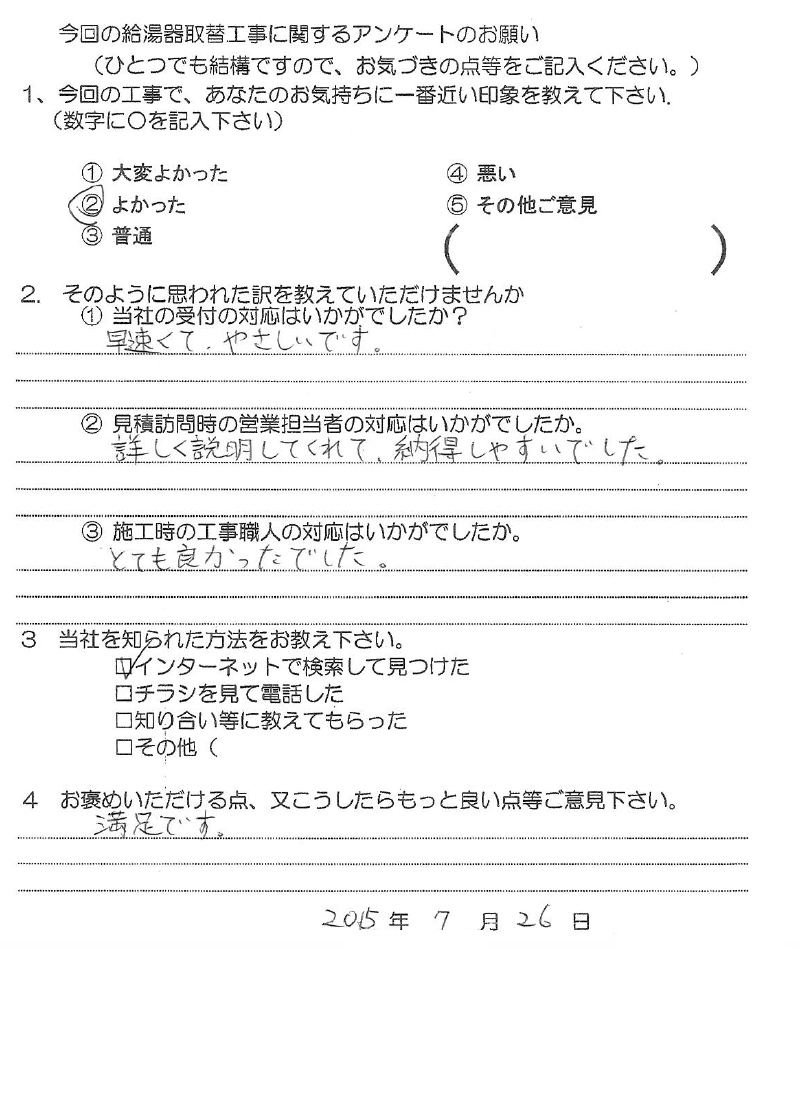 今回の給湯器取替工事に関するアンケートのお願い
（ひとつでも結構ですので、お気づきの点等をご記入ください。）
1、今回の工事で、あなたのお気持ちに一番近い印象を教えて下さい.
（数字に〇を記入下さい）
① 大変よかった ④ 悪い
② よかった ⑤ その他ご意見
③ 普通 （ ）
2. そのように思われた訳を教えていただけませんか
① 当社の受付の対応はいかがでしたか？
早速くて、やさしいです。
② 見積訪問時の営業担当者の対応はいかがでしたか。
詳しく説明してくれて、納得しやすいでした。
③ 施工時の工事職人の対応はいかがでしたか。
とても良かったでした。
3 当社を知られた方法をお教え下さい。
☑インターネットで検索して見つけた
□チラシを見て電話した
□知り合い等に教えてもらった
□その他（
4 お褒めいただける点、又こうしたらもっと良い点等ご意見下さい。
満足です。
2015年 7 月 26 日